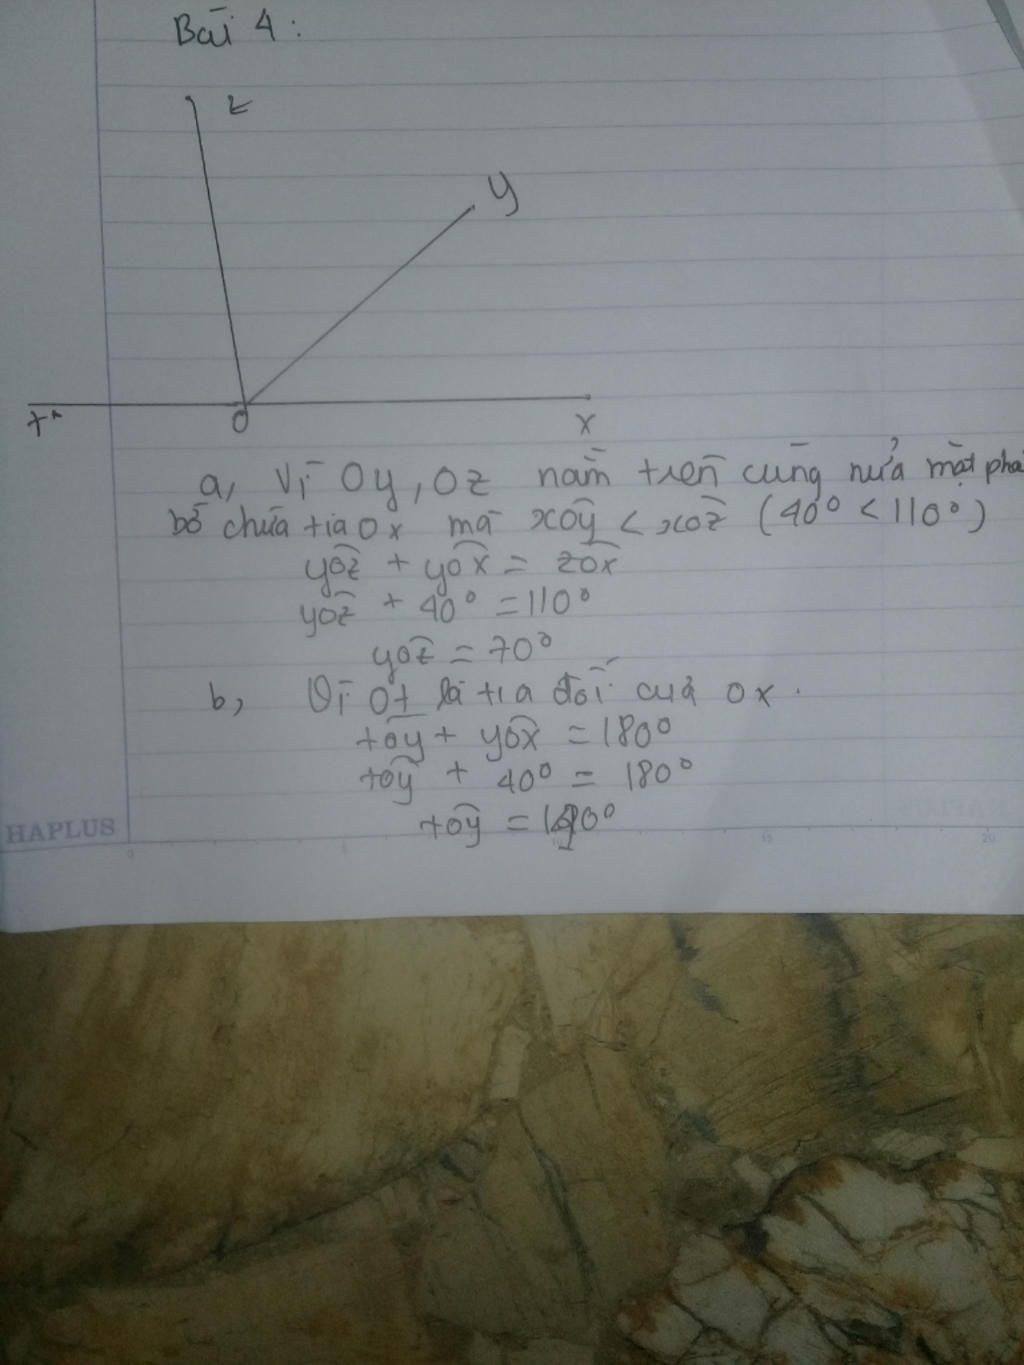 Bài 4:
z
y
t
O
x
a, Vì Oy, Oz nằm trên cùng nửa mặt phẳ
bờ chứa tia Ox mà xOy < xOz (40° < 110°)
yOz + yOx = zOx
yOz + 40° = 110°
yOz = 70°
b, Vì Ot là tia đối của Ox.
tOy + yOx = 180°
tOy + 40° = 180°
tOy = 140°
HAPLUS
0
5
10
15
20